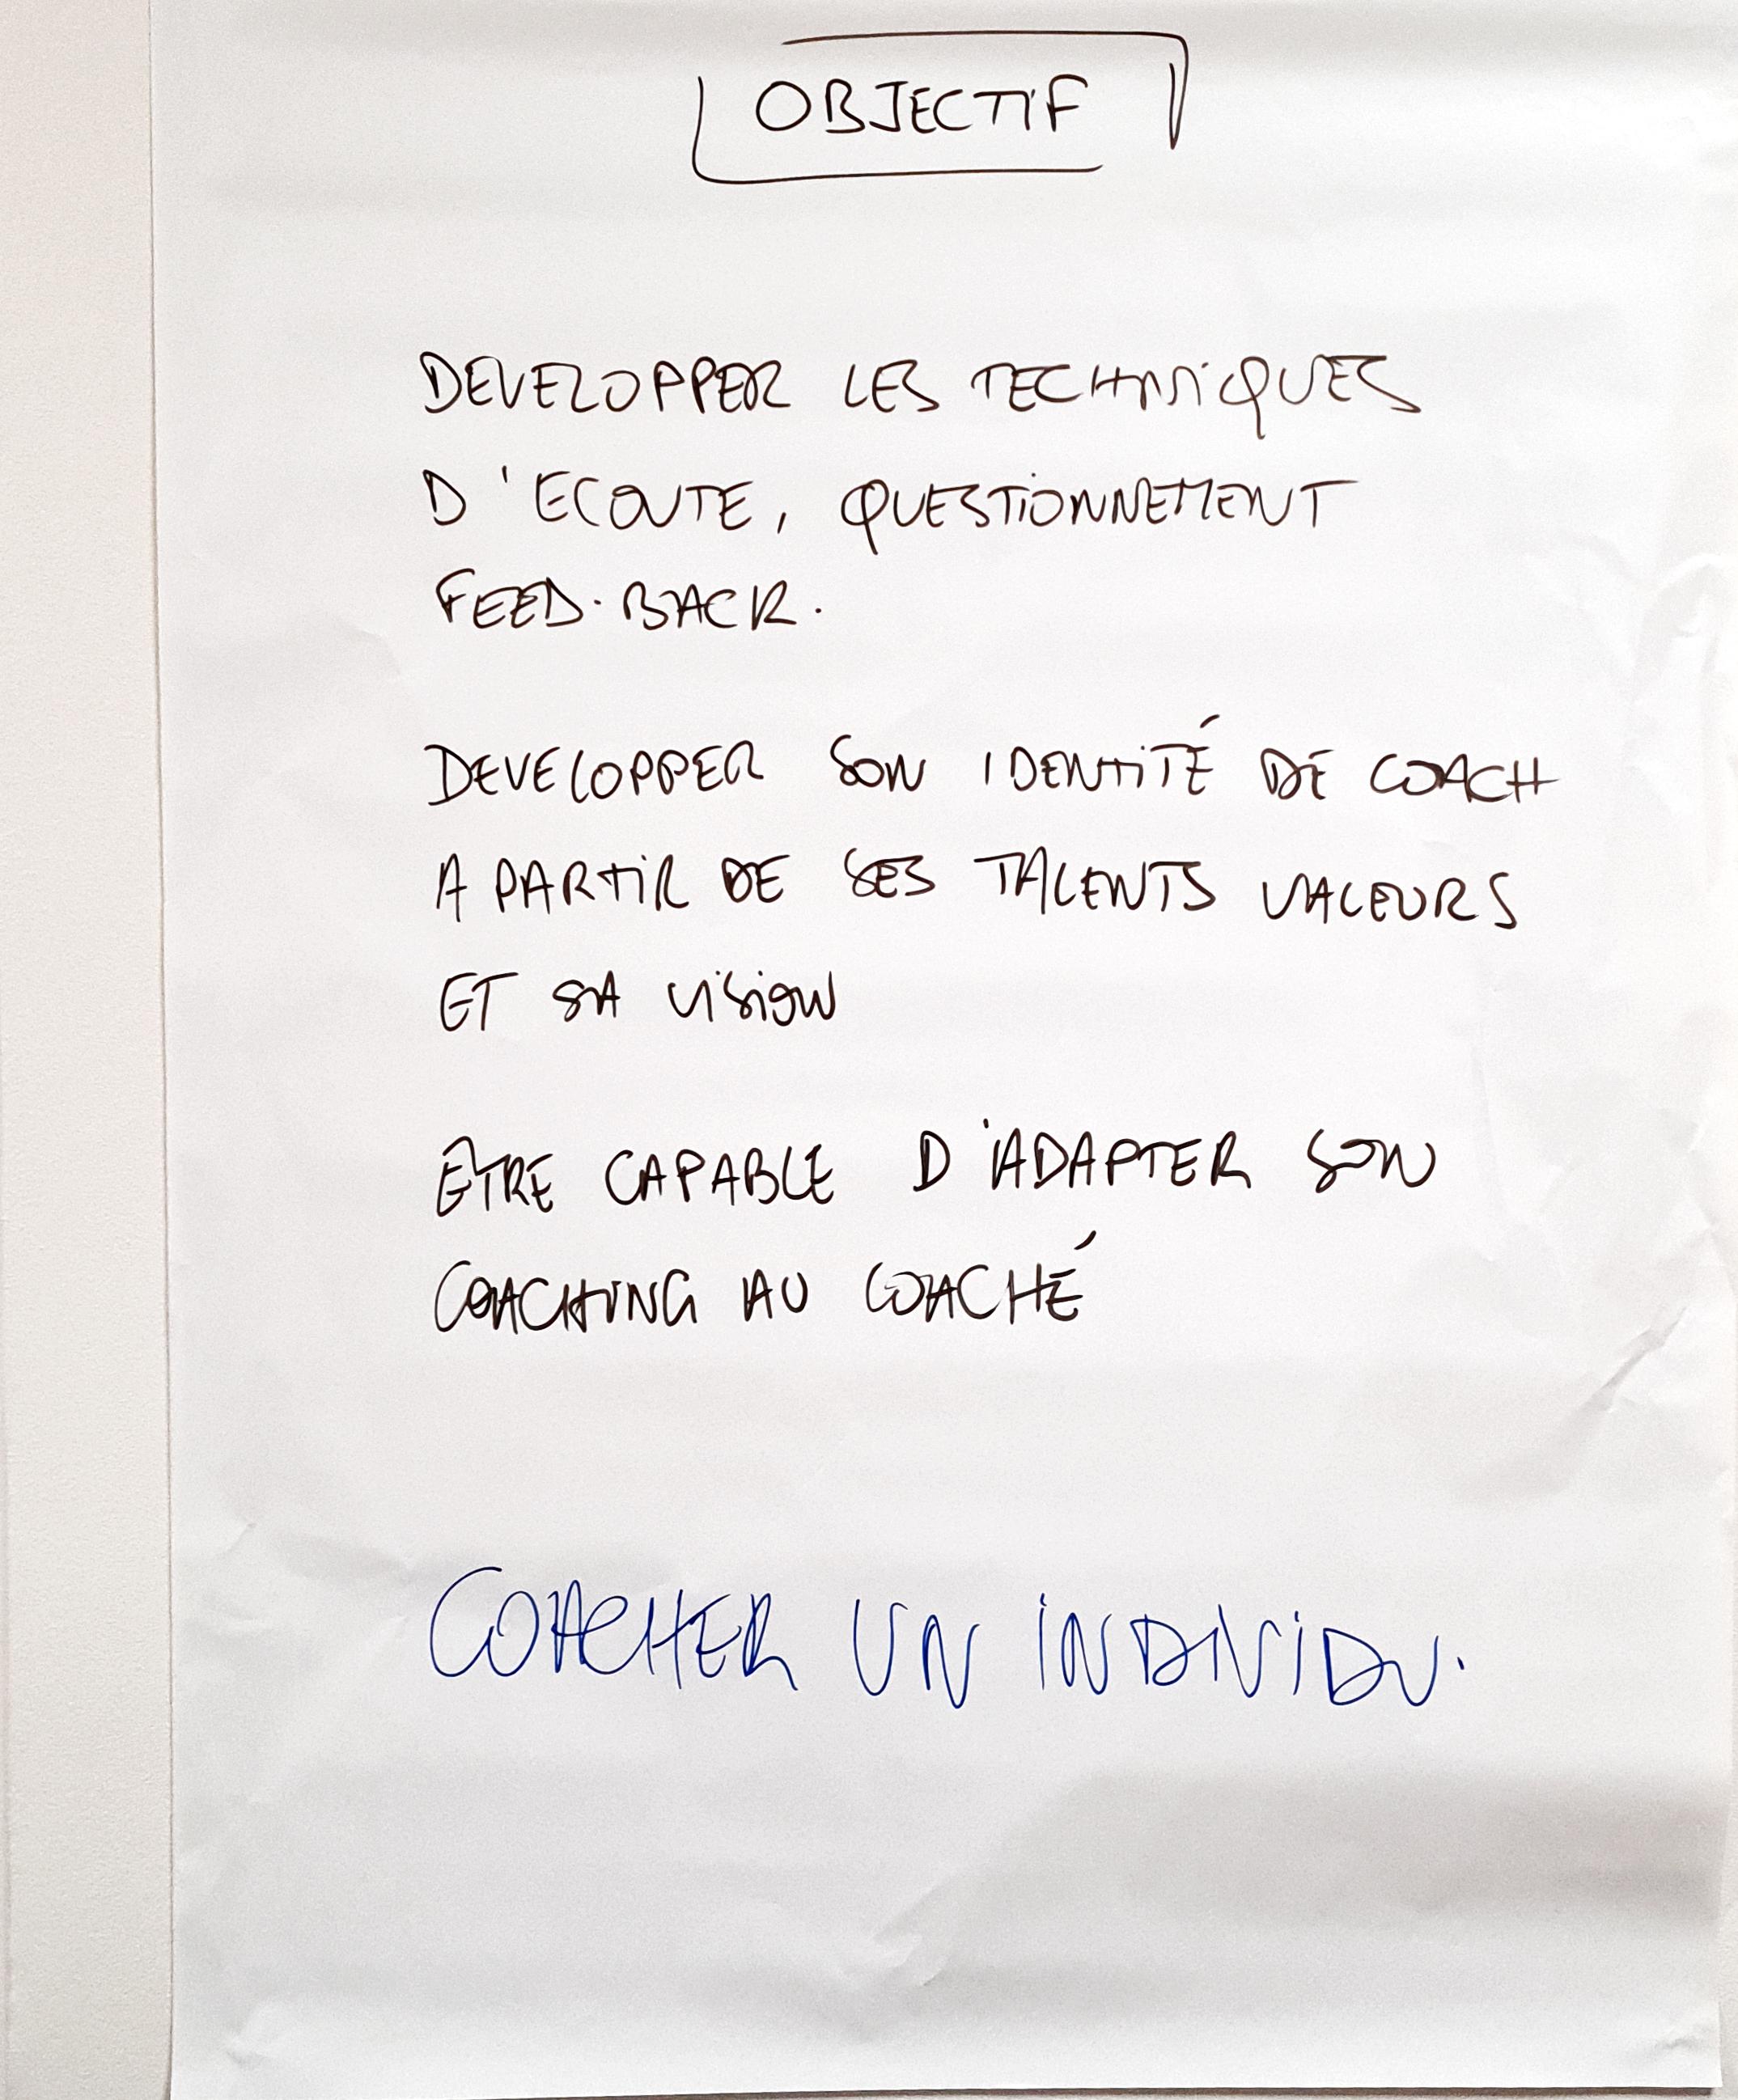 OBJECTIF
DEVELOPPER LES TECHNIQUES
D'ECOUTE, QUESTIONNEMENT
FEED-BACK.
DEVELOPPER SON IDENTITÉ DE COACH
A PARTIR DE SES TALENTS VALEURS
ET SA VISION
ETRE CAPABLE D'ADAPTER SON
COACHING AU COACHÉ
COACHER UN INDIVIDU.